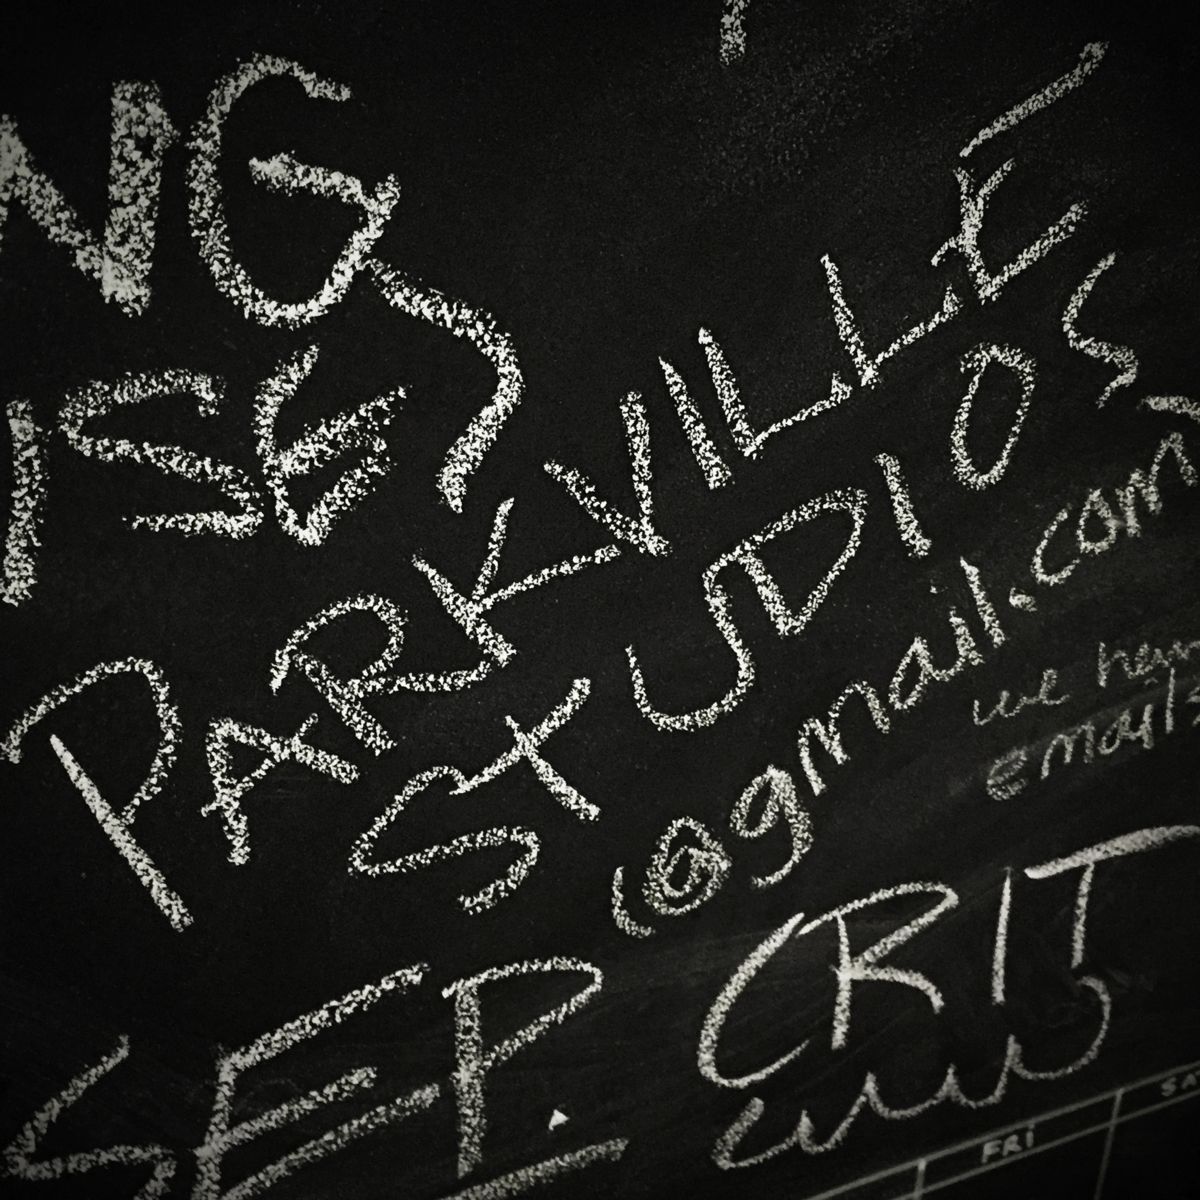 NG
ISE
PARKVILLE
StUDIOS
@gmail.com
we
emails
SEP.
CRIT
FRI
SA